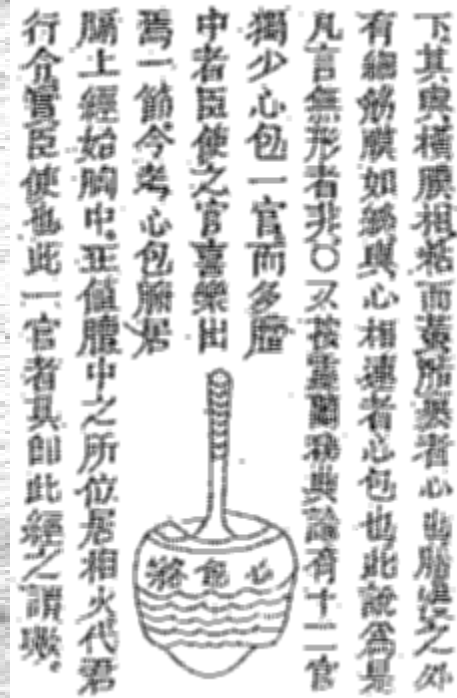 下其與橫膜相粘而黃脂裹者心也脂漫之外
有細筋膜如絲與心相連者心包也此說為是
凡言無形者非○又按靈蘭秘典論有十二官
獨少心包一官而多膻
中者臣使之官喜樂出
焉一節今考心包臟居
膈上經始胸中正值膻中之所位居相火代君
行令實臣使也此一官者其即此經之謂歟。
心包絡